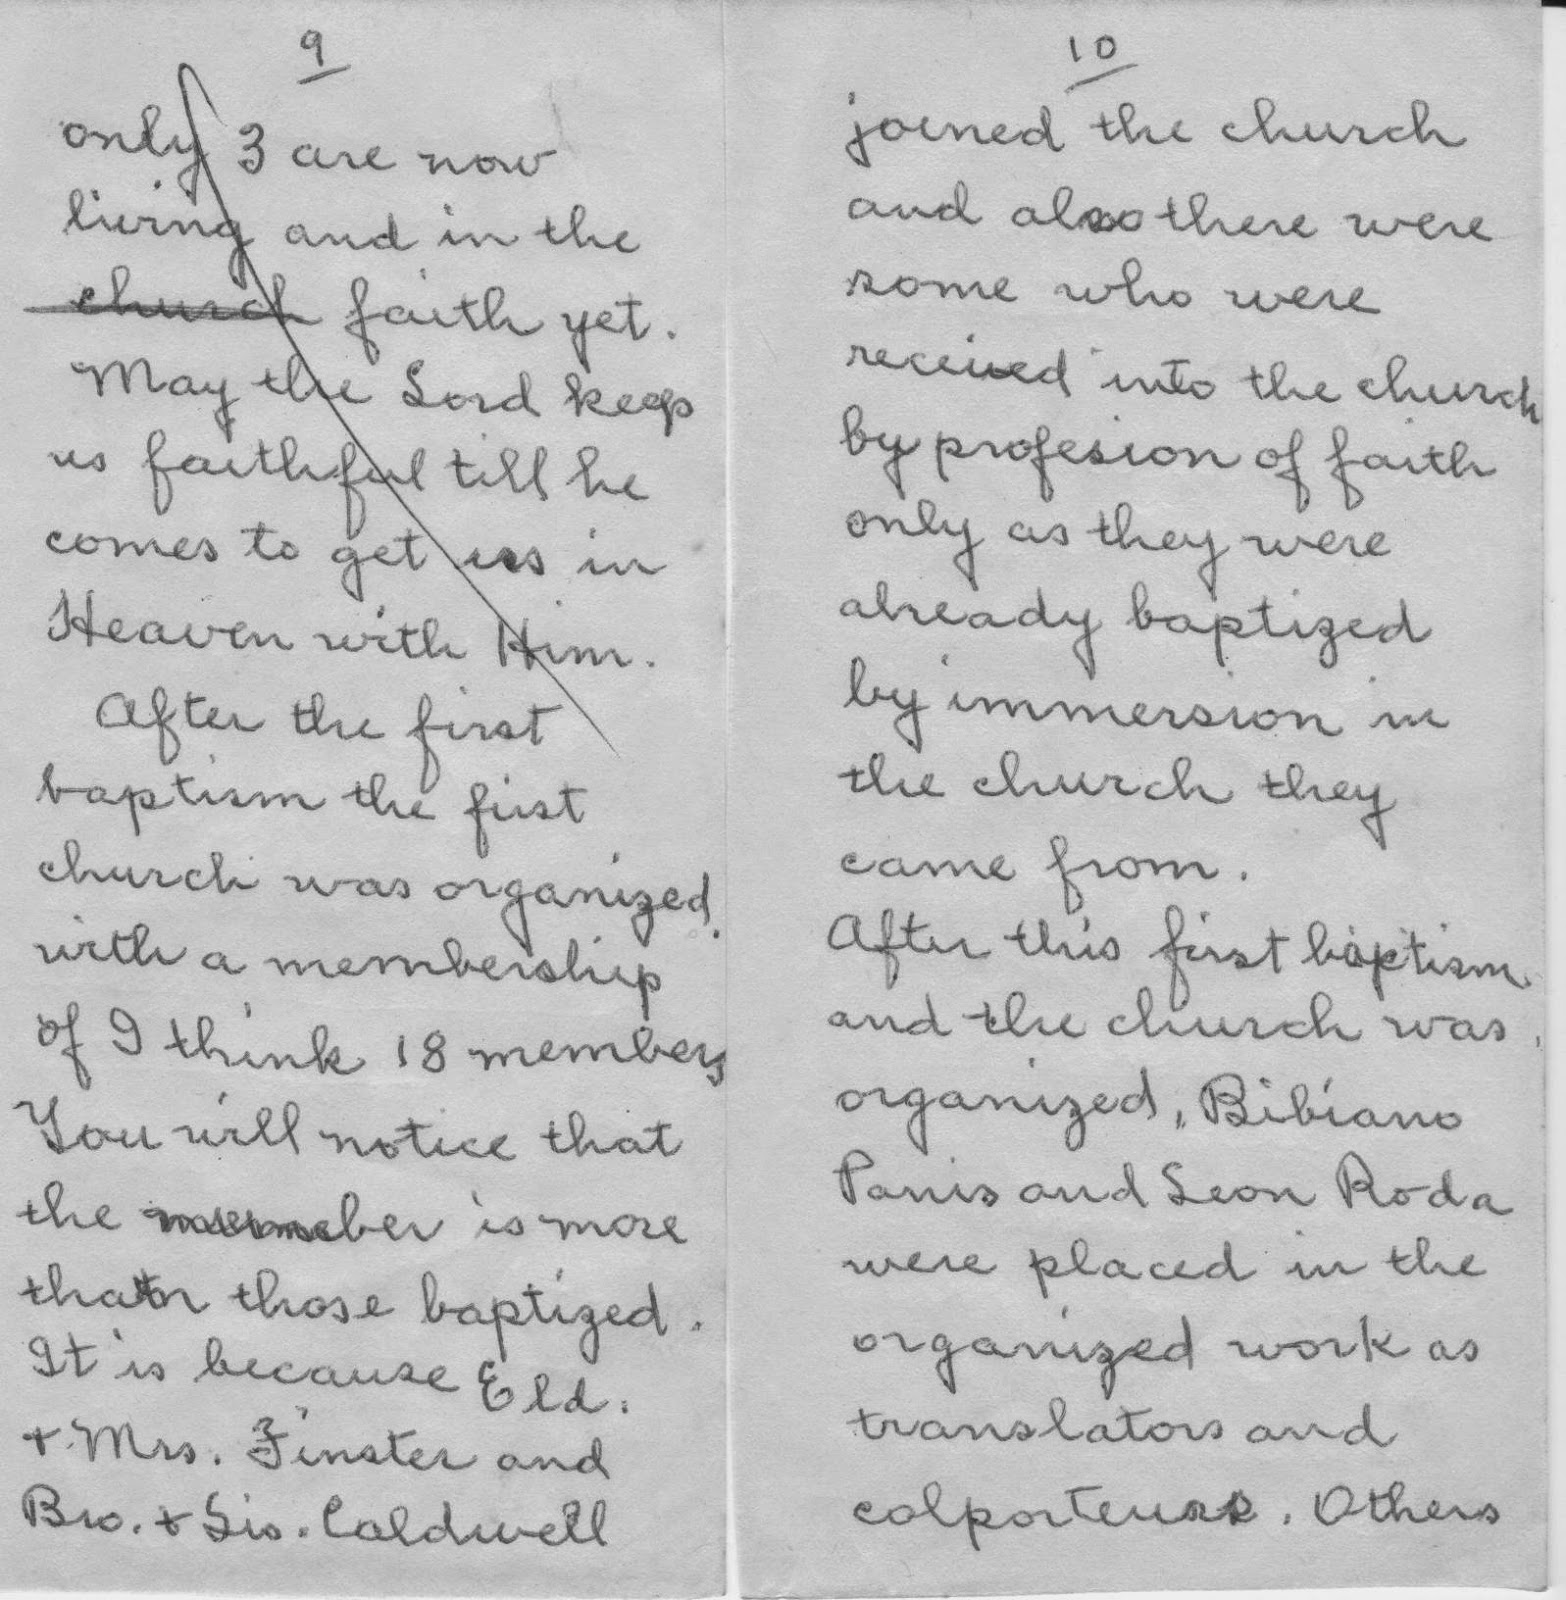 9
only 3 are now
living and in the
church faith yet.
May the Lord keep
us faithful till he
comes to get us in
Heaven with Him.
After the first
baptism the first
church was organized
with a membership
of I think 18 members
You will notice that
the member is more
than those baptized.
It is because Eld.
+ Mrs. Finster and
Bro. & Sis. Caldwell
10
joined the church
and also there were
some who were
received into the church
by profesion of faith
only as they were
already baptized
by immersion in
the church they
came from.
After this first baptism
and the church was
organized, Bibiano
Panis and Leon Roda
were placed in the
organized work as
translators and
colporteurs. Others